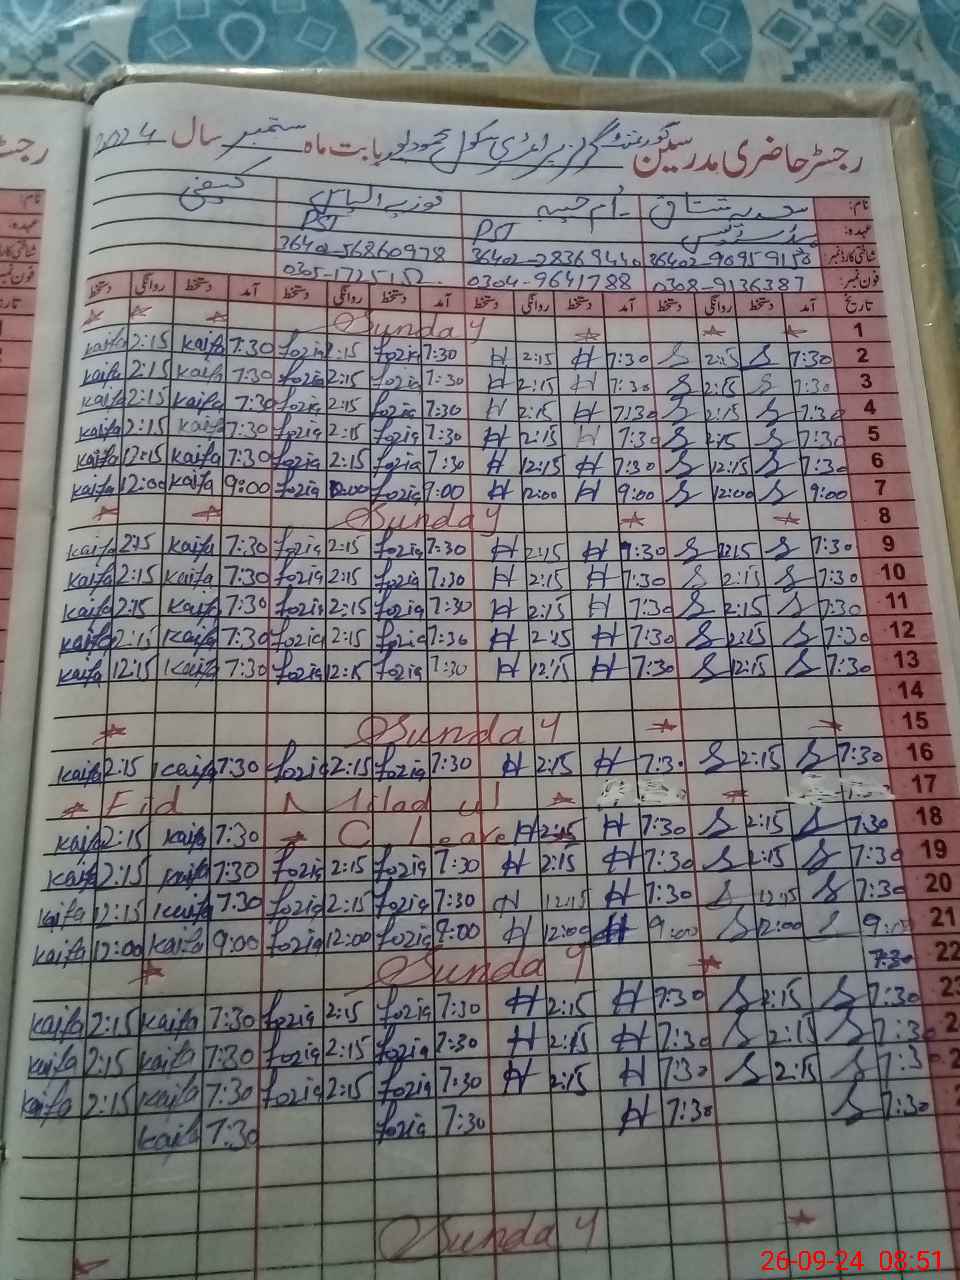 رجسٹر حاضری مدرسین گورنمنٹ گرلز پرائمری سکول محمود پور بابت ماہ ستمبر سال 2024
نام: سعدیہ مشتاق ام حبیبہ فوزیہ الیاس کیفی
عہدہ: PST PST
شناختی کارڈ نمبر: 36402-56860978
فون نمبر: 0308-9136387 0304-9641788
تاریخ آمد دستخط روانگی دستخط آمد دستخط روانگی دستخط آمد دستخط روانگی دستخط آمد دستخط روانگی دستخط
1 Sunday
2 7:30 S 2:15 S 7:30 H 2:15 H 7:30 fozia 2:15 fozia 7:30 kaifa 2:15 kaifa
3 7:30 S 2:15 S 7:30 H 2:15 H 7:30 fozia 2:15 fozia 7:30 kaifa 2:15 kaifa
4 7:30 S 2:15 S 7:30 H 2:15 H 7:30 fozia 2:15 fozia 7:30 kaifa 2:15 kaifa
5 7:30 S 2:15 S 7:30 H 2:15 H 7:30 fozia 2:15 fozia 7:30 kaifa 2:15 kaifa
6 7:30 S 12:15 S 7:30 H 12:15 H 7:30 fozia 2:15 fozia 7:30 kaifa 12:15 kaifa
7 9:00 S 12:00 S 9:00 H 12:00 H 9:00 fozia 12:00 fozia 9:00 kaifa 12:00 kaifa
8 Sunday
9 7:30 S S 7:30 H 2:15 H 7:30 fozia 2:15 fozia 7:30 kaifa 2:15 kaifa
10 7:30 S 2:15 S 7:30 H 2:15 H 7:30 fozia 2:15 fozia 7:30 kaifa 2:15 kaifa
11 7:30 S 2:15 S 7:30 H 2:15 H 7:30 fozia 2:15 fozia 7:30 kaifa 2:15 kaifa
12 7:30 S 2:15 S 7:30 H 2:15 H 7:30 fozia 2:15 fozia 7:30 kaifa 2:15 kaifa
13 7:30 S 12:15 S 7:30 H 12:15 H 7:30 fozia 12:15 fozia 7:30 kaifa 12:15 kaifa
14
15 Sunday
16 7:30 S 2:15 S 7:30 H 2:15 H 7:30 fozia 2:15 fozia 7:30 kaifa 2:15 kaifa
17 Eid Milad ul N
18 7:30 S 2:15 S 7:30 H 2:15 H C Leave 7:30 kaifa 2:15 kaifa
19 7:30 S 2:15 S 7:30 H 2:15 H 7:30 fozia 2:15 fozia 7:30 kaifa 2:15 kaifa
20 7:30 S 12:15 S 7:30 H 12:15 H 7:30 fozia 2:15 fozia 7:30 kaifa 12:15 kaifa
21 9:00 S 12:00 S 9:00 H 12:00 H 9:00 fozia 12:00 fozia 9:00 kaifa 12:00 kaifa
22 7:30 Sunday
23 7:30 S 2:15 S 7:30 H 2:15 H 7:30 fozia 2:15 fozia 7:30 kaifa 2:15 kaifa
7:30 S 2:15 S 7:30 H 2:15 H 7:30 fozia 2:15 fozia 7:30 kaifa 2:15 kaifa
7:30 S 2:15 S 7:30 H 2:15 H 7:30 fozia 2:15 fozia 7:30 kaifa 2:15 kaifa
7:30 S 7:30 H 7:30 fozia 7:30 kaifa
Sunday
26-09-24 08:51